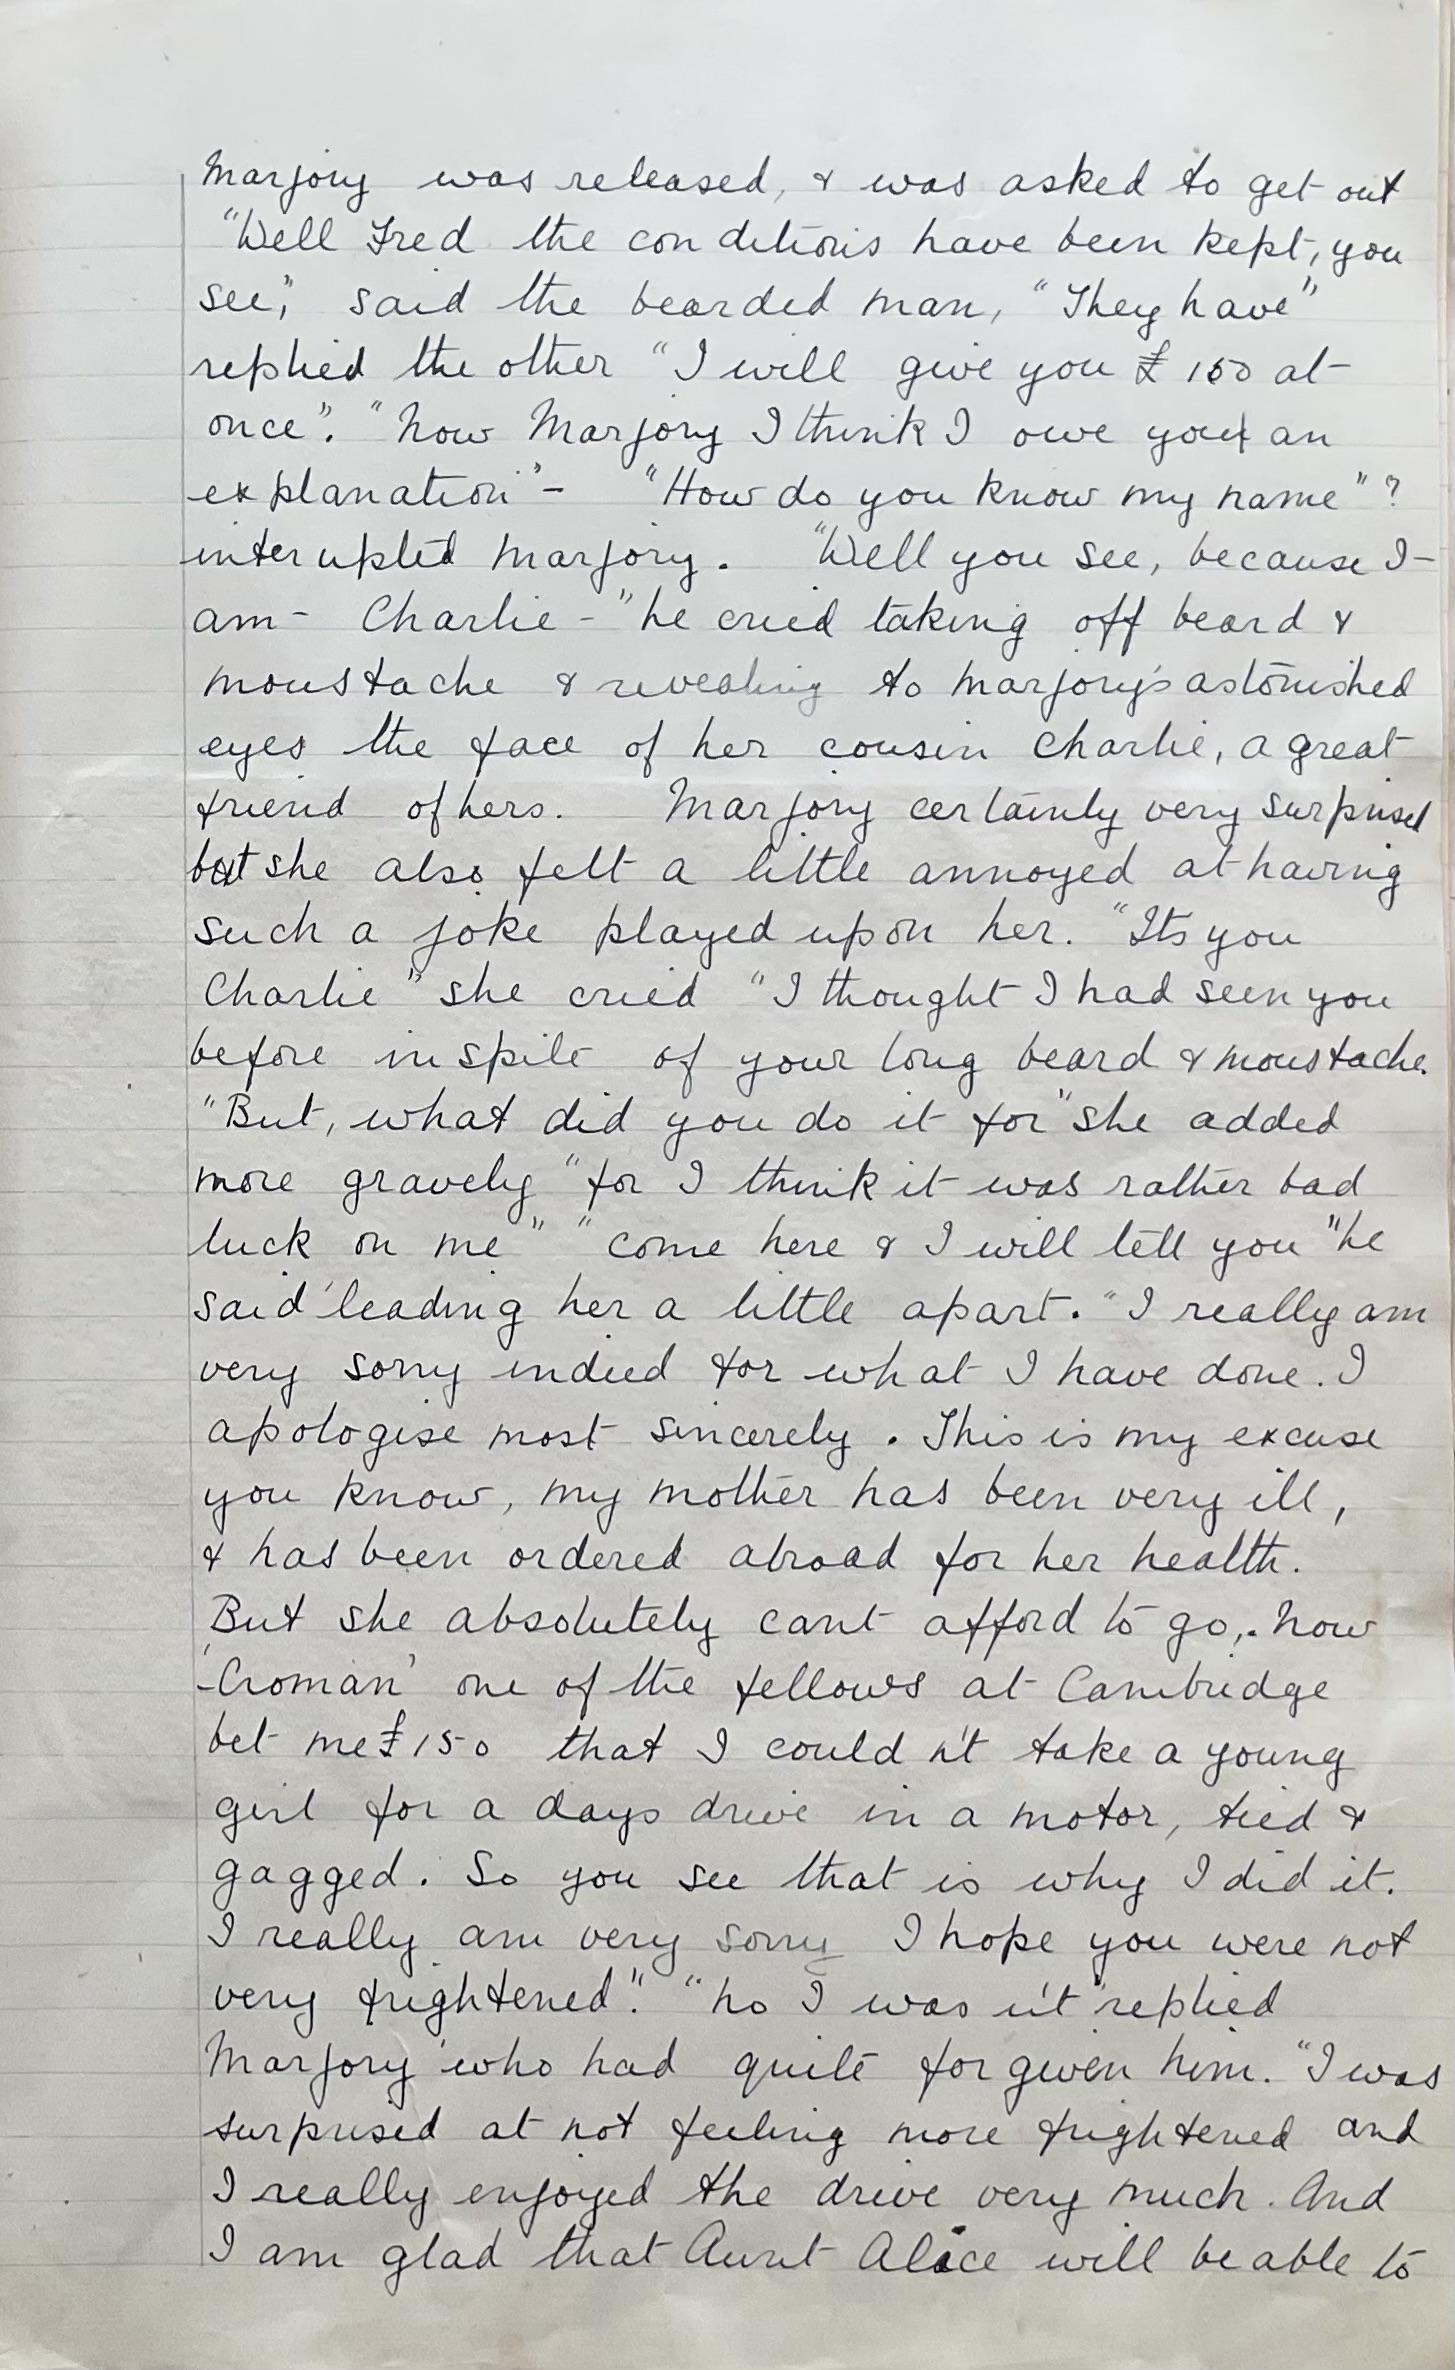 Marjory was released, & was asked to get out
"Well Fred the conditions have been kept, you
see," said the bearded man, "They have"
replied the other "I will give you £150 at
once". "Now Marjory I think I owe you an
explanation" - "How do you know my name"?
interupted Marjory. "Well you see, because I -
am - Charlie -" he cried taking off beard &
moustache & revealing to Marjory's astonished
eyes the face of her cousin Charlie, a great
friend of hers. Marjory certainly very surprised
but she also felt a little annoyed at having
such a joke played upon her. "Its you
Charlie" she cried "I thought I had seen you
before in spite of your long beard & moustache.
"But, what did you do it for" she added
more gravely "for I think it was rather bad
luck on me" "come here & I will tell you" he
said leading her a little apart. "I really am
very sorry indeed for what I have done. I
apologise most sincerely. This is my excuse
you know, my mother has been very ill,
& has been ordered abroad for her health.
But she absolutely cant afford to go,. Now
'Croman' one of the fellows at Cambridge
bet me £150 that I could n't take a young
girl for a days drive in a motor, tied &
gagged. So you see that is why I did it.
I really am very sorry I hope you were not
very frightened". "No I was n't" replied
Marjory who had quite forgiven him. "I was
surprised at not feeling more frightened and
I really enjoyed the drive very much. And
I am glad that Aunt Alice will be able to